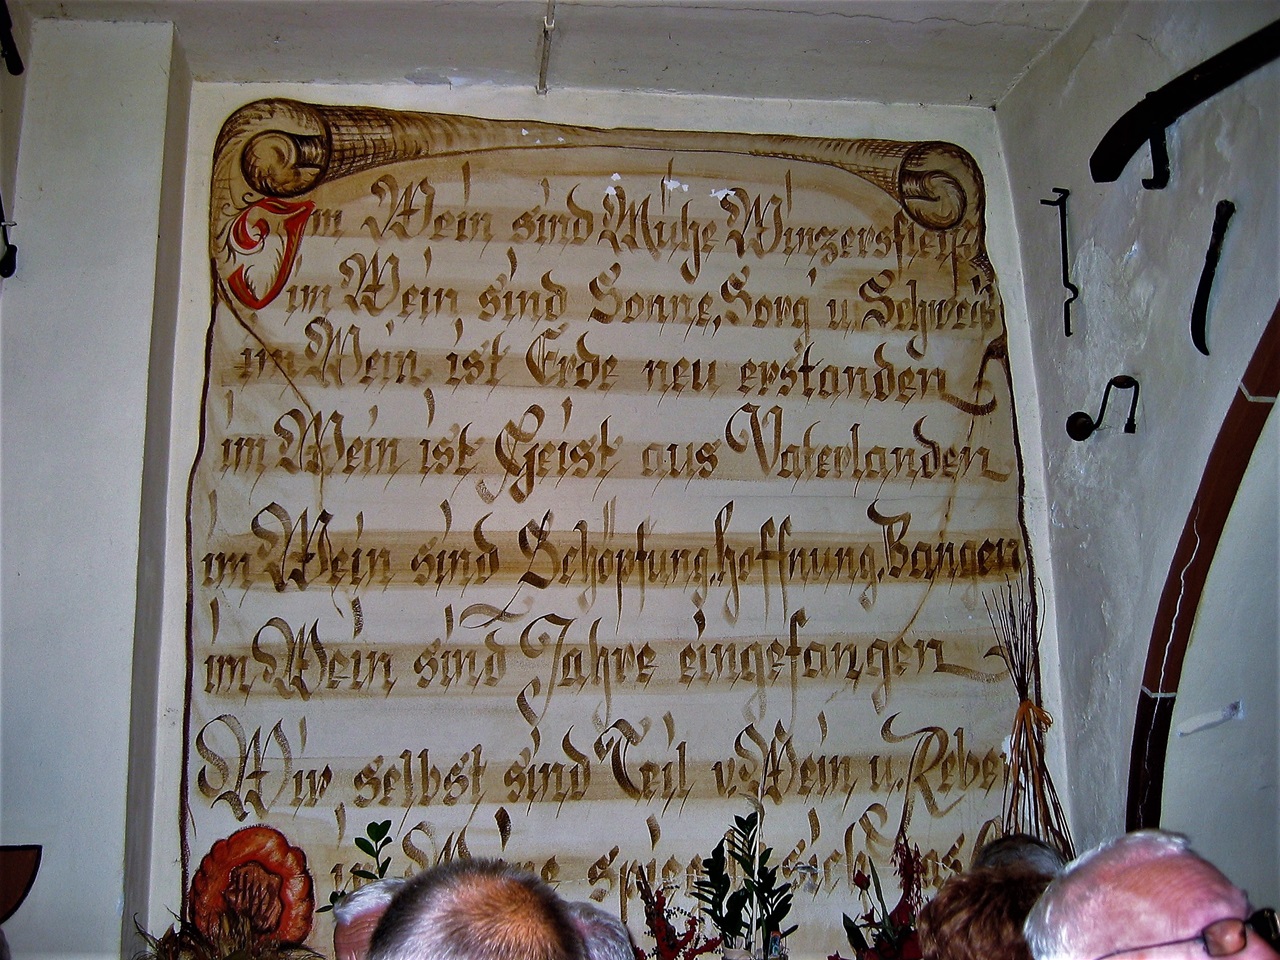 Im Wein sind Mühe Winzersfleiß
im Wein sind Sonne, Sorg u. Schweiß
im Wein ist Erde neu erstanden
im Wein ist Geist aus Vaterlanden
im Wein sind Schöpfung, hoffnung, Bangen
im Wein sind Jahre eingefangen
Wir selbst sind Teil v. Wein u. Rebe
im sich